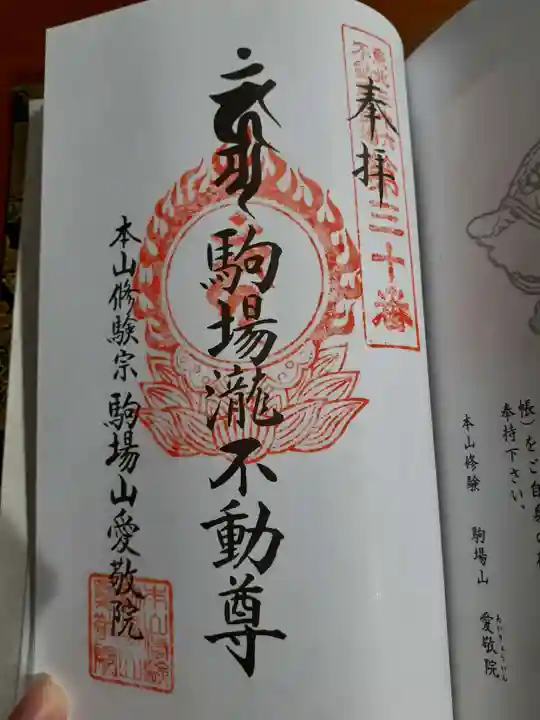 奉拝
第三十番
駒場瀧不動尊
本山修験宗 駒場山愛敬院
帳）をご自身の
奉持下さい。
本山修験 駒場山 愛敬院
あいきょういん